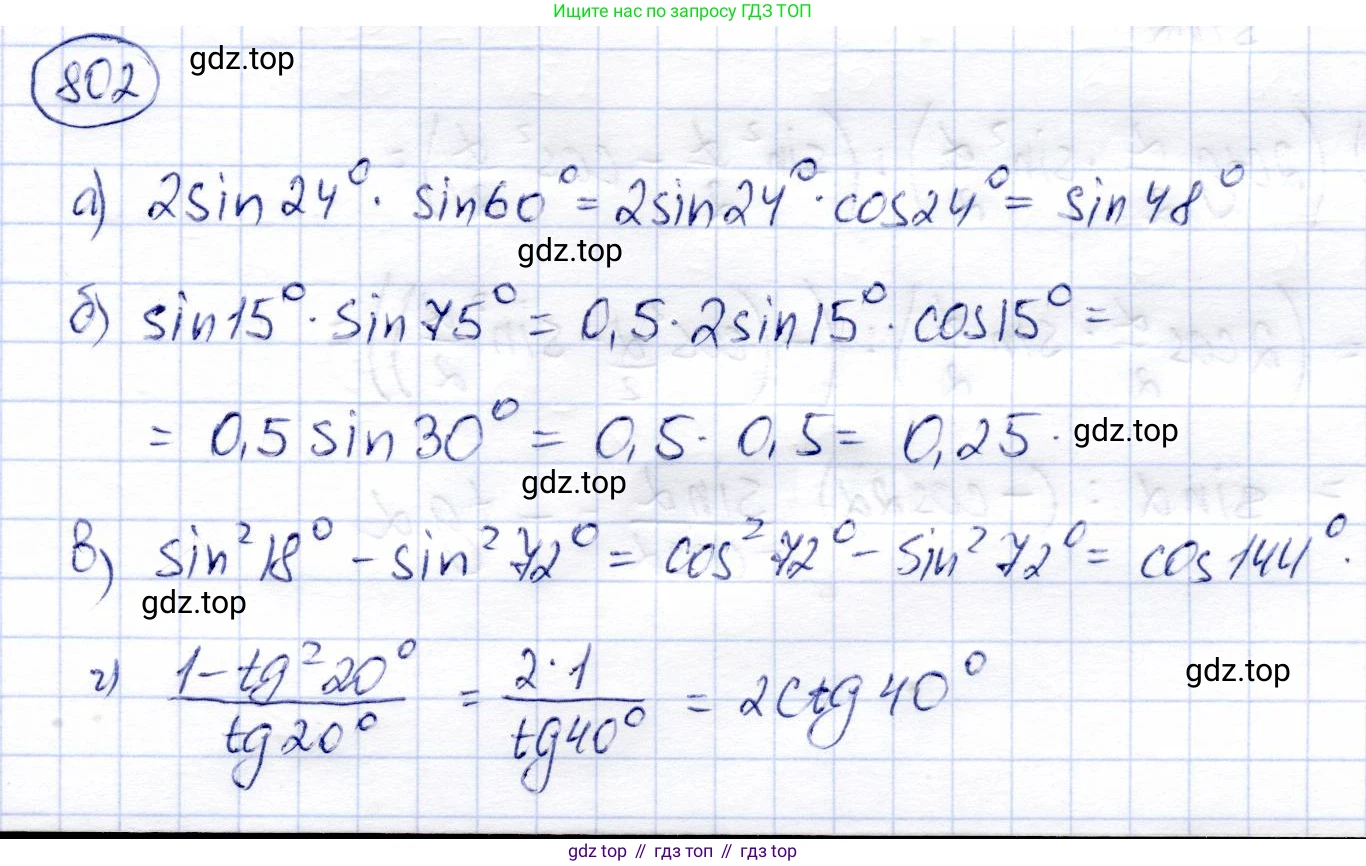 Ищите нас по запросу ГДЗ ТОП
802 gdz.top
а) 2sin24° · sin60° = 2sin24° · cos24° = sin48°
gdz.top
б) sin15° · sin75° = 0,5 · 2sin15° · cos15° =
= 0,5 sin30° = 0,5 · 0,5 = 0,25 · gdz.top
gdz.top
в) sin²18° - sin²72° = cos²72° - sin²72° = cos144°.
gdz.top
г) (1 - tg²20°)/(tg20°) = (2·1)/(tg40°) = 2ctg40° gdz.top
gdz top // гдз топ // гдз top